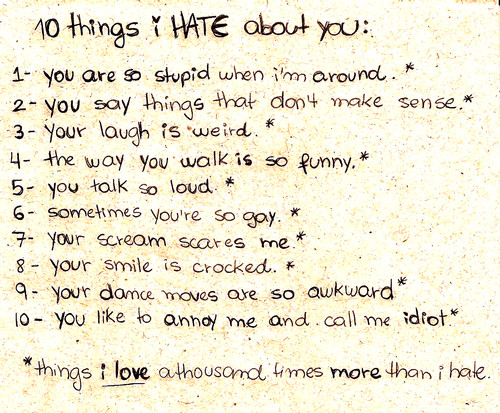 10 things i HATE about you:
1- you are so stupid when i'm around. *
2- you say things that don't make sense.*
3- your laugh is weird. *
4- the way you walk is so funny.*
5- you talk so loud. *
6- sometimes you're so gay. *
7- your scream scares me.*
8- your smile is crocked. *
9- your dance moves are so awkward*
10- you like to annoy me and call me idiot.*
*things i love a thousand times more than i hate.